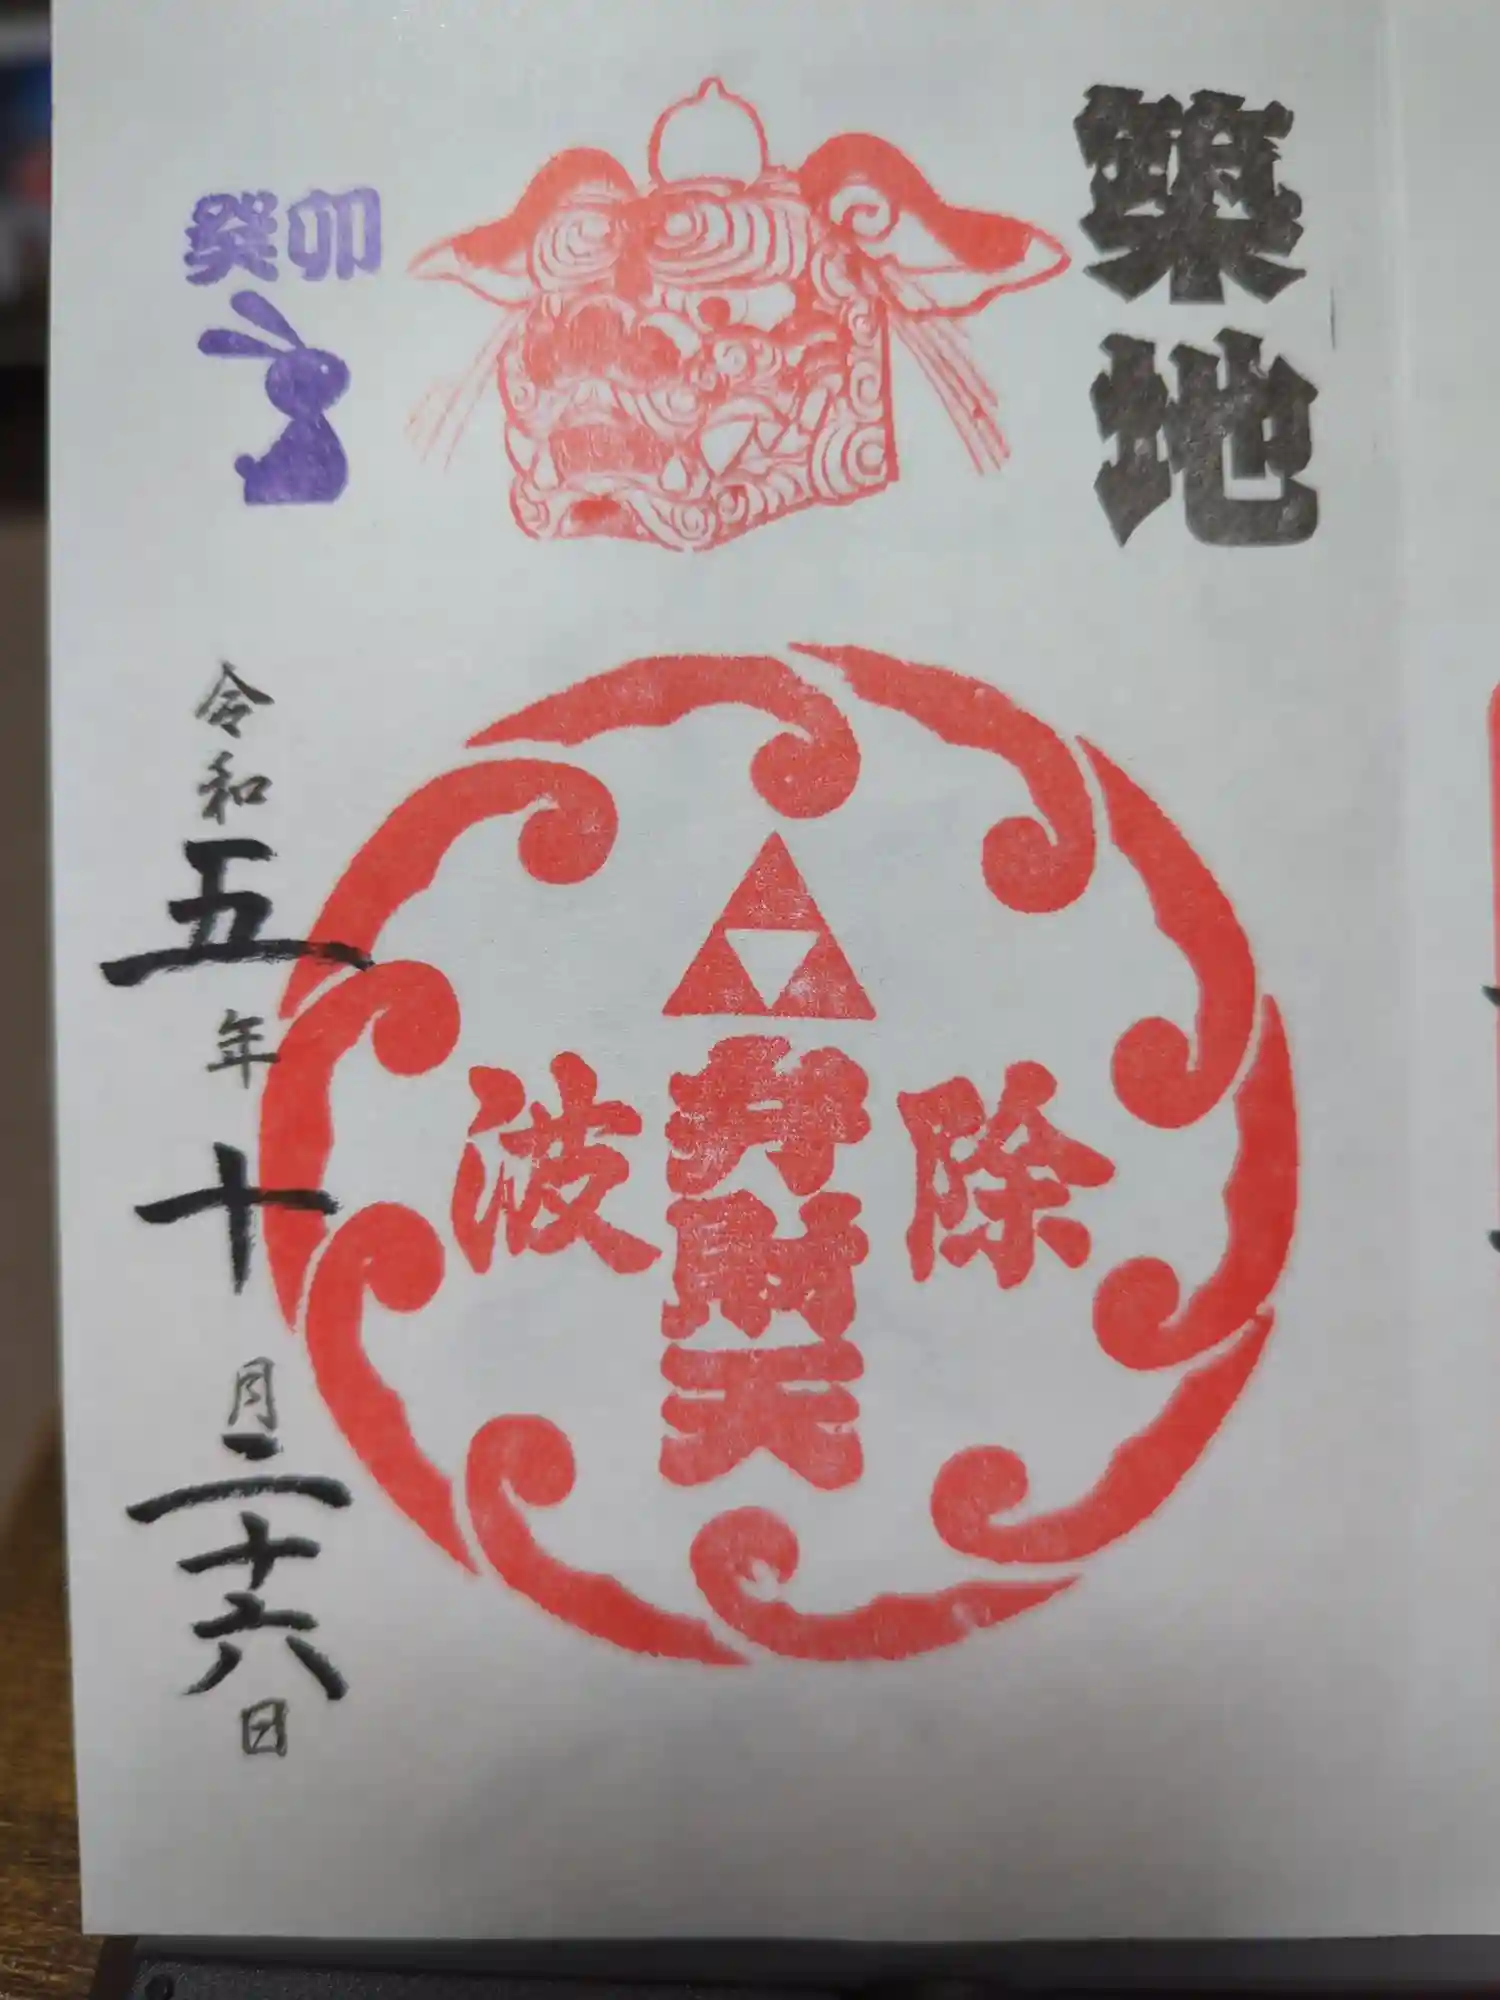 築地
除
弁財天
波
癸卯
令和五年十月二十六日